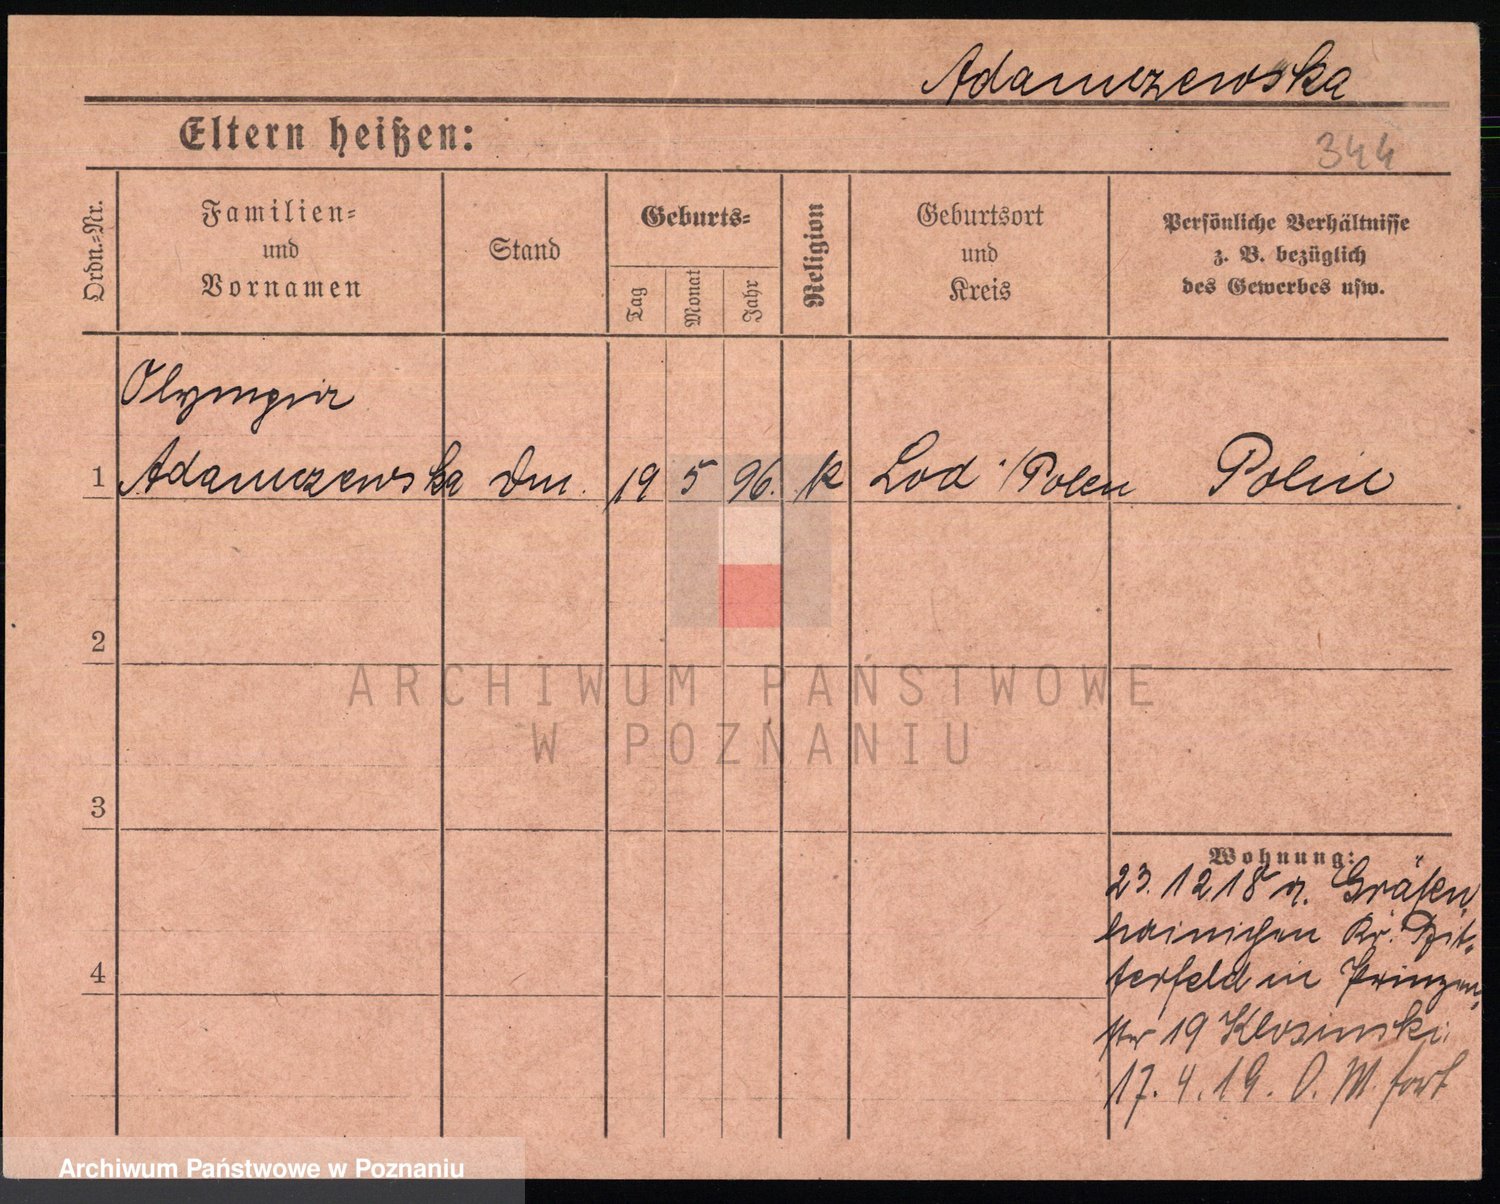 Adamczewska
Eltern heißen:
344
Ordn.=Nr.
Familien=
und
Vornamen
Stand
Geburts=
Tag
Monat
Jahr
Religion
Geburtsort
und
Kreis
Persönliche Verhältnisse
z. B. bezüglich
des Gewerbes usw.
Olympia
1 Adamczewska 19 5 96. k Lod /Polen Polin
2
ARCHIWUM PAŃSTWOWE
W POZNANIU
3
Wohnung:
23. 12 18 n. Gräfen
hainichen Kr. Bit=
4
terfeld in Prinzen=
str 19 Klosinski.
17. 4. 19. O. M. fort
Archiwum Państwowe w Poznaniu